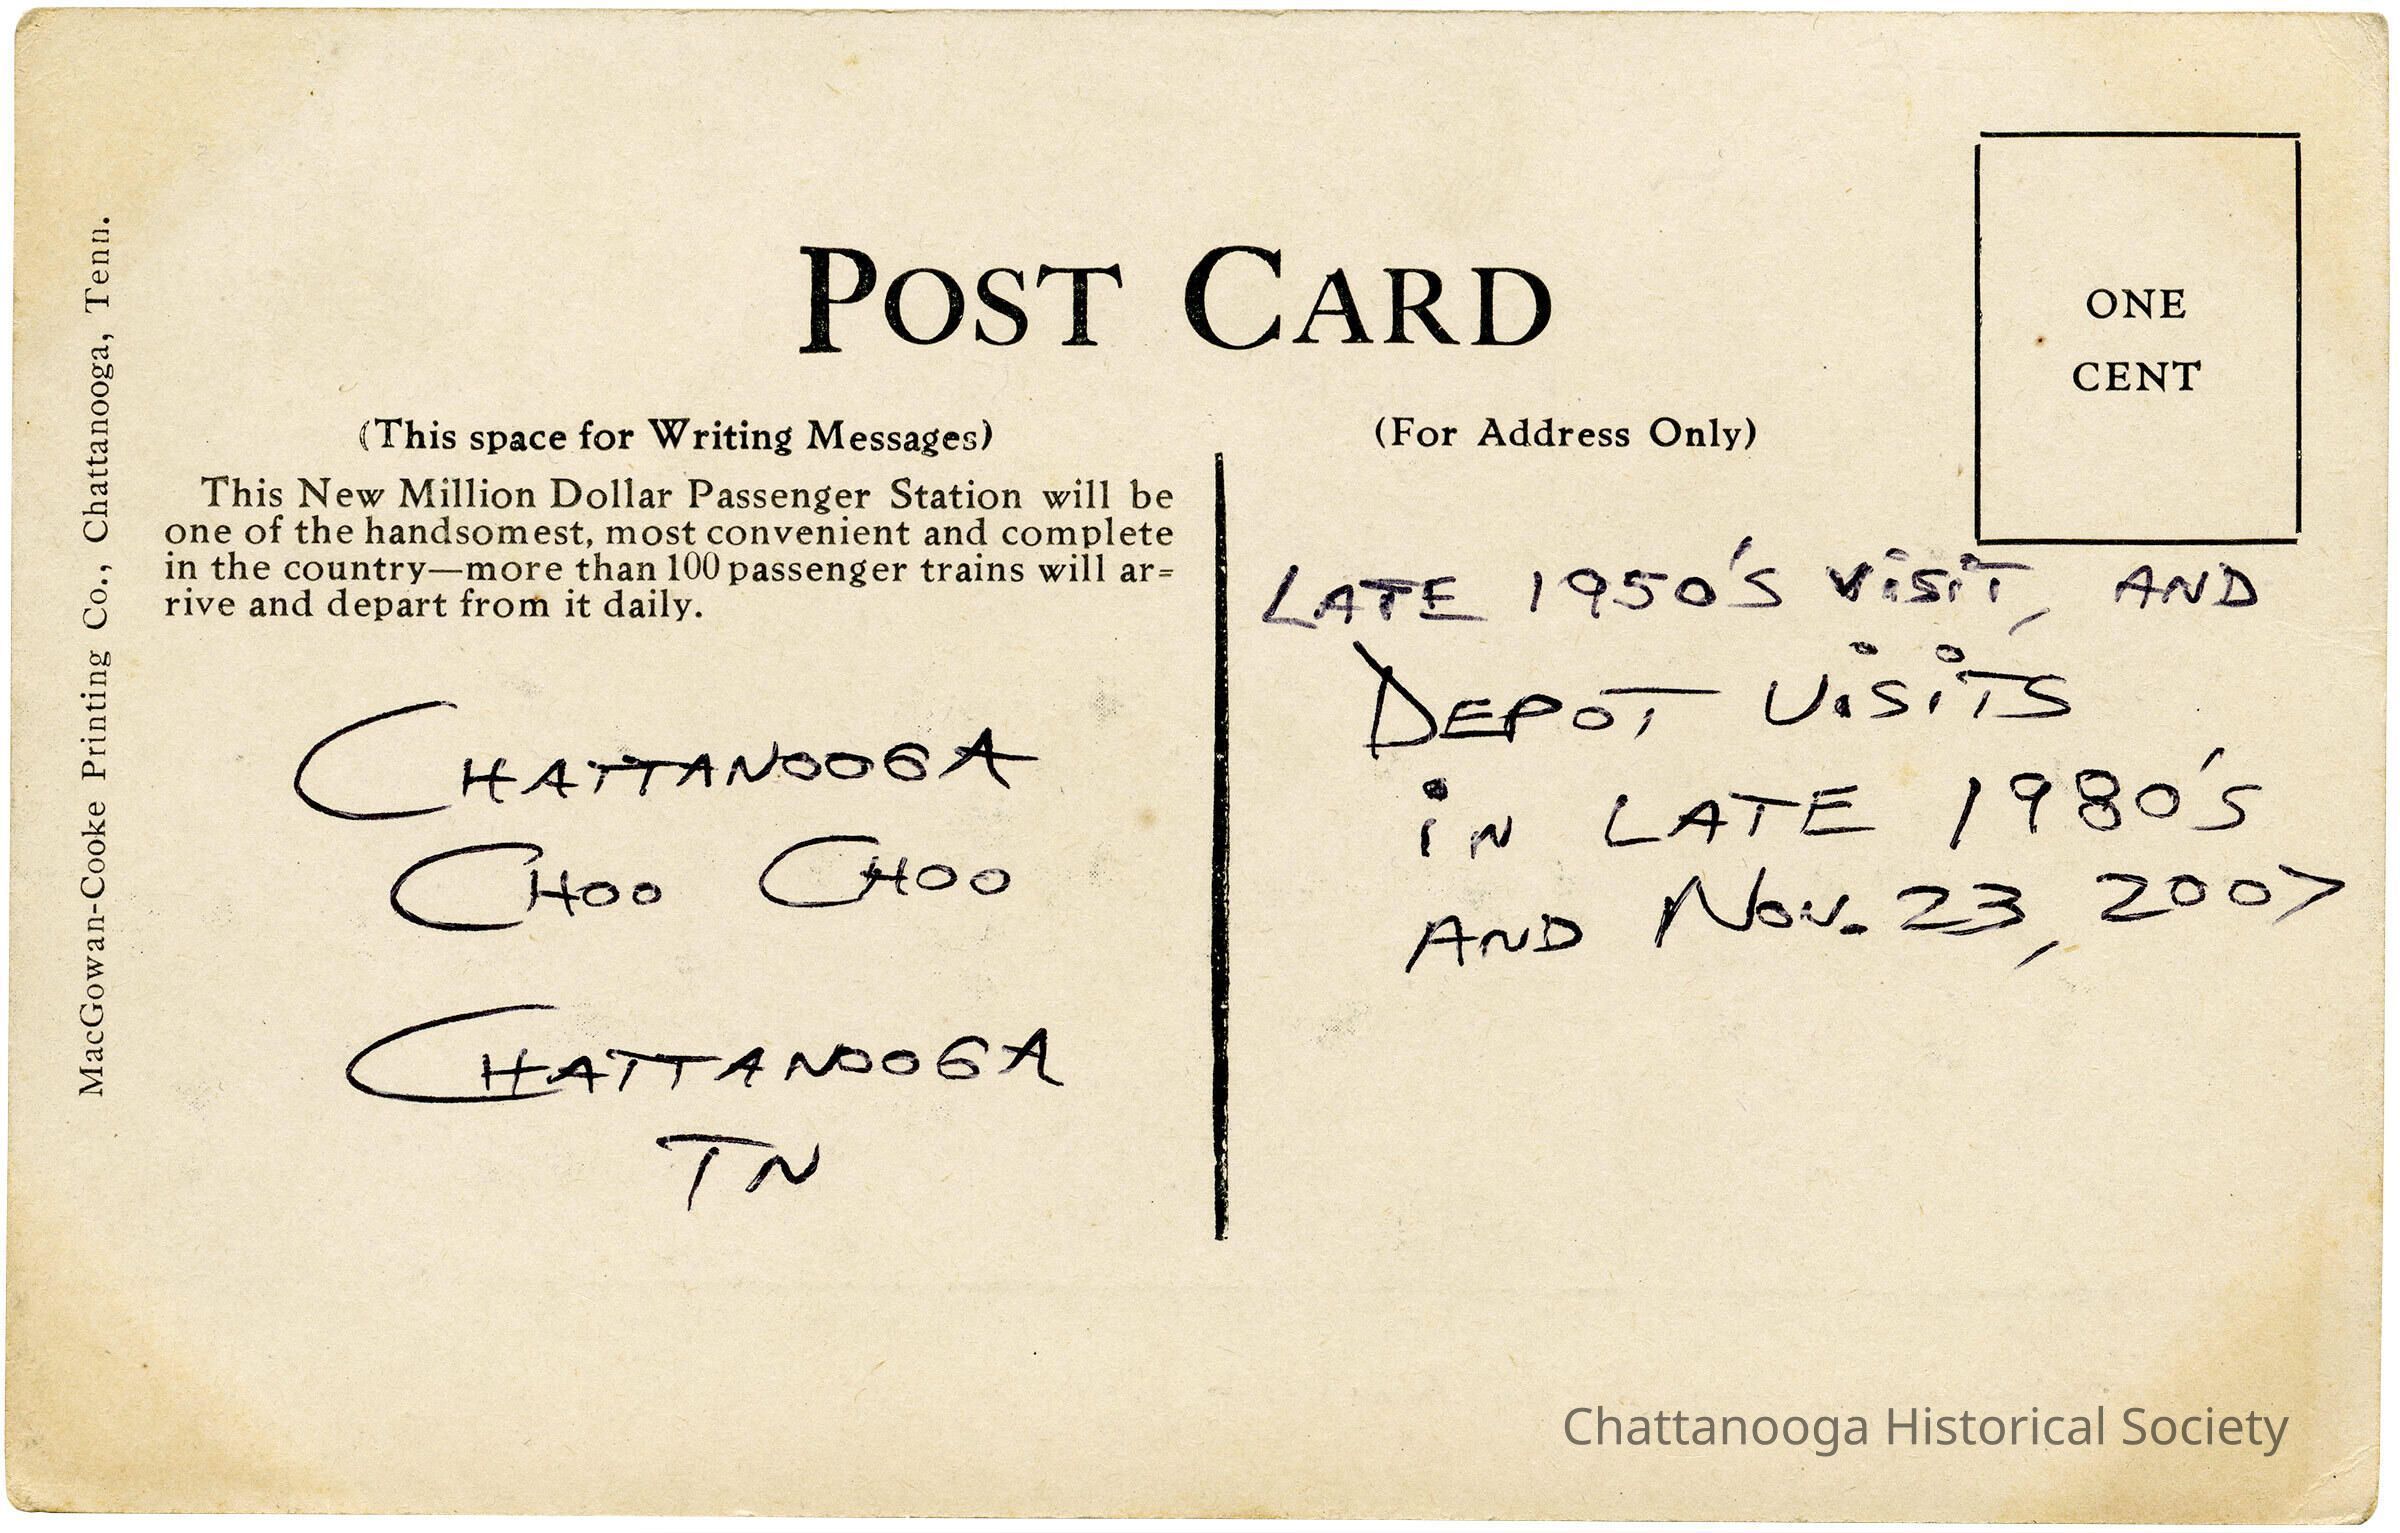 POST CARD
ONE
CENT
(This space for Writing Messages)
(For Address Only)
This New Million Dollar Passenger Station will be
one of the handsomest, most convenient and complete
in the country—more than 100 passenger trains will ar=
rive and depart from it daily.
MacGowan-Cooke Printing Co., Chattanooga, Tenn.
CHATTANOOGA
CHOO CHOO
CHATTANOOGA
TN
LATE 1950'S ViSiT, AND
DEPOT ViSiTS
iN LATE 1980'S
AND Nov. 23, 2007
Chattanooga Historical Society